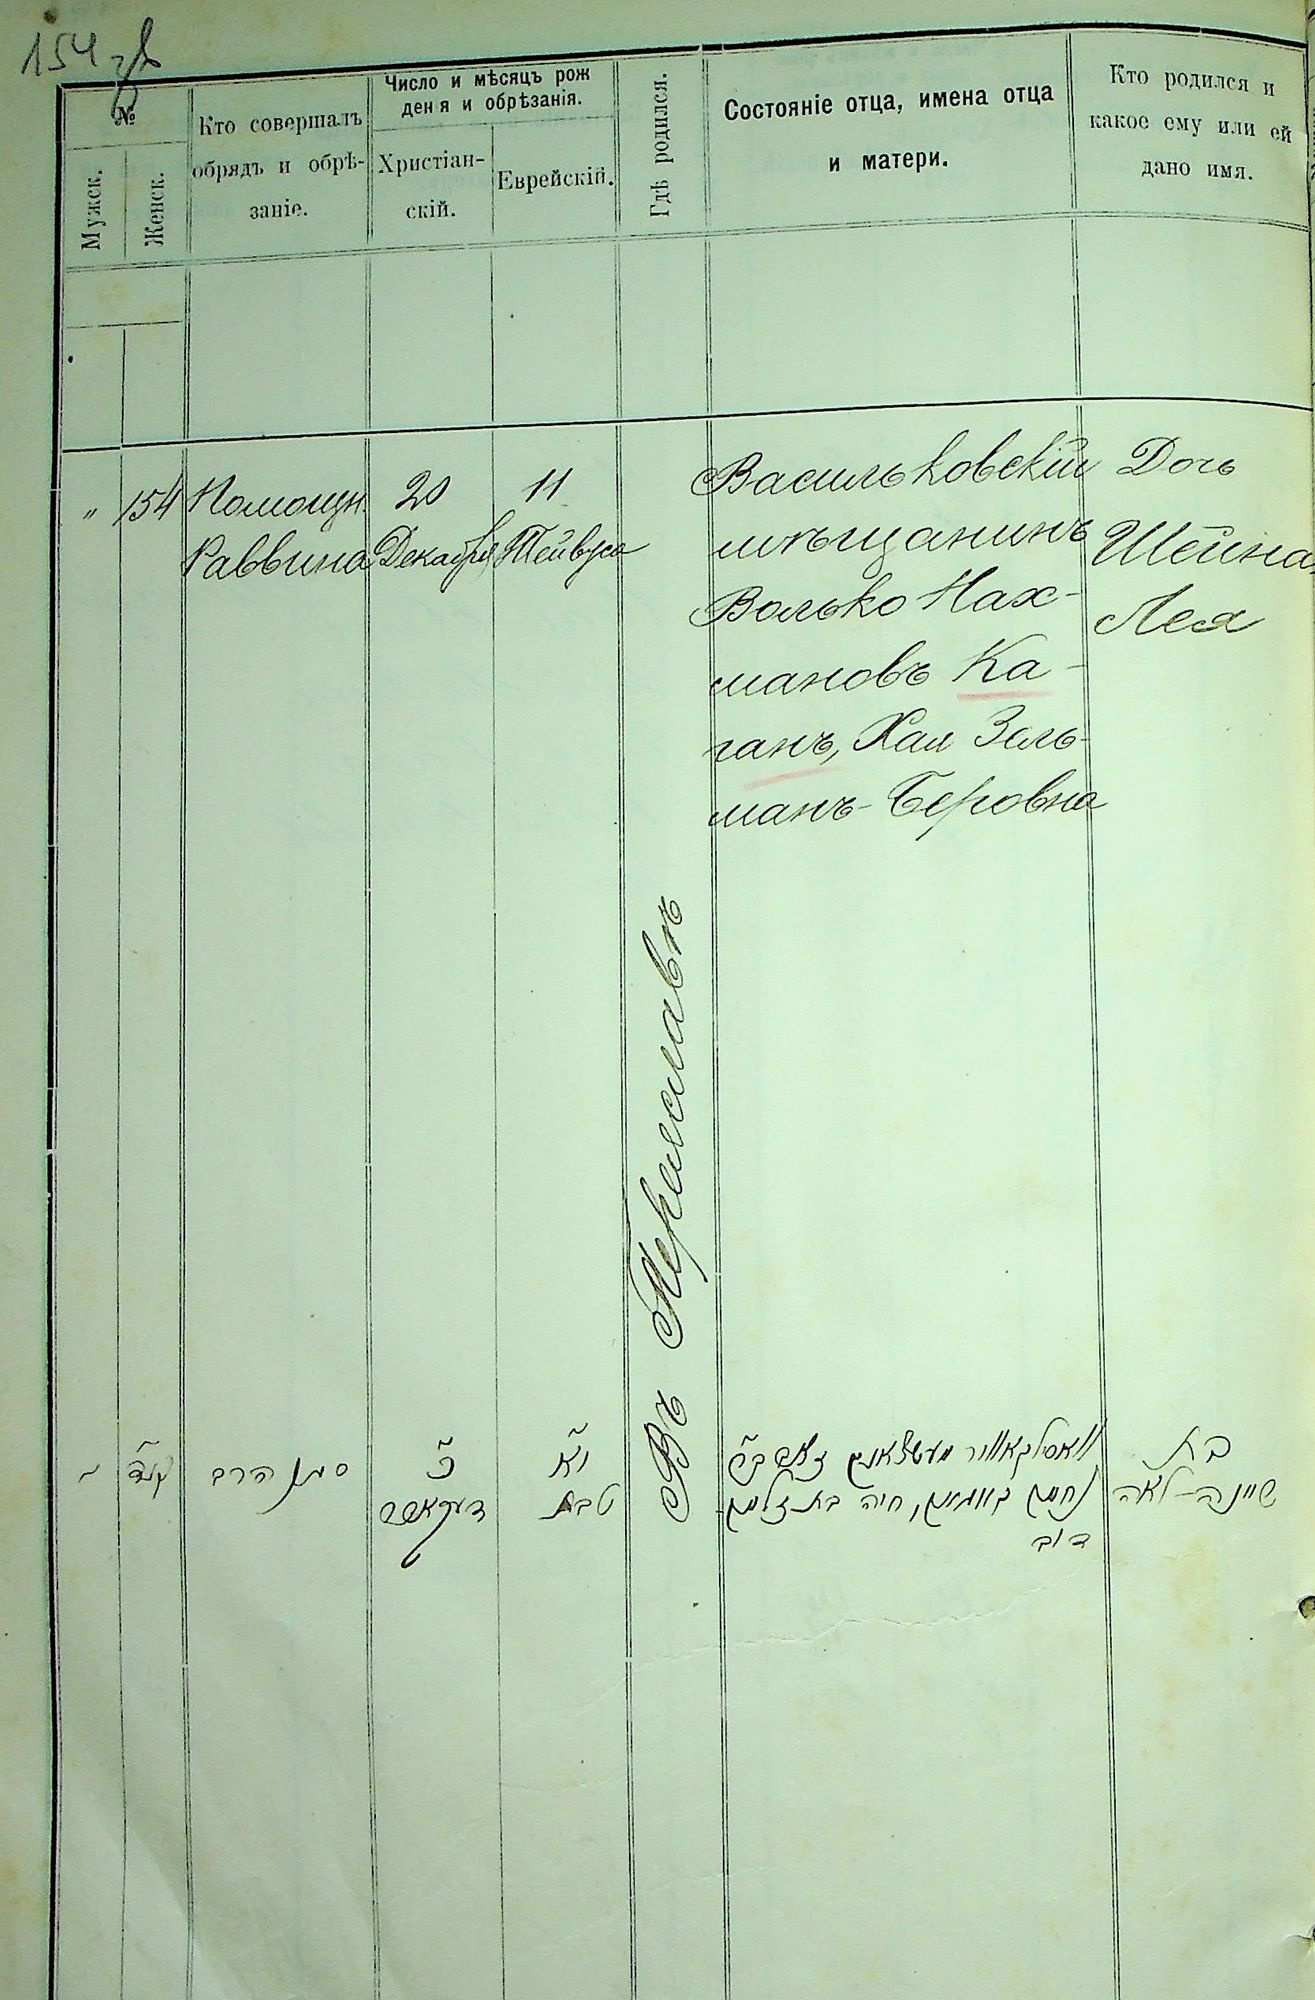 154 зв
№
Мужск.
Женск.
Кто совершалъ
обрядъ и обрѣ-
заніе.
Число и мѣсяцъ рож
ден я и обрѣзанія.
Христіан-
скій.
Еврейскій.
Гдѣ родился.
Состояніе отца, имена отца
и матери.
Кто родился и
какое ему или ей
дано имя.
" 154
Помощн.
Раввина
20
Декабря
11
Тейвуса
Въ Переяславѣ
Васильковскій
мѣщанинъ
Волько Нах-
мановъ Ка-
ганъ, Хая Зель-
манъ-Беровна
Дочь
Шейна
Лея
קנד
סגן הרב
כ
דעקאבר
יא
טבת
וואסילקאווער מעשצאנין
נחמן קאגאן, חיה בת זלמן
דוב
בת
שיינה-לאה